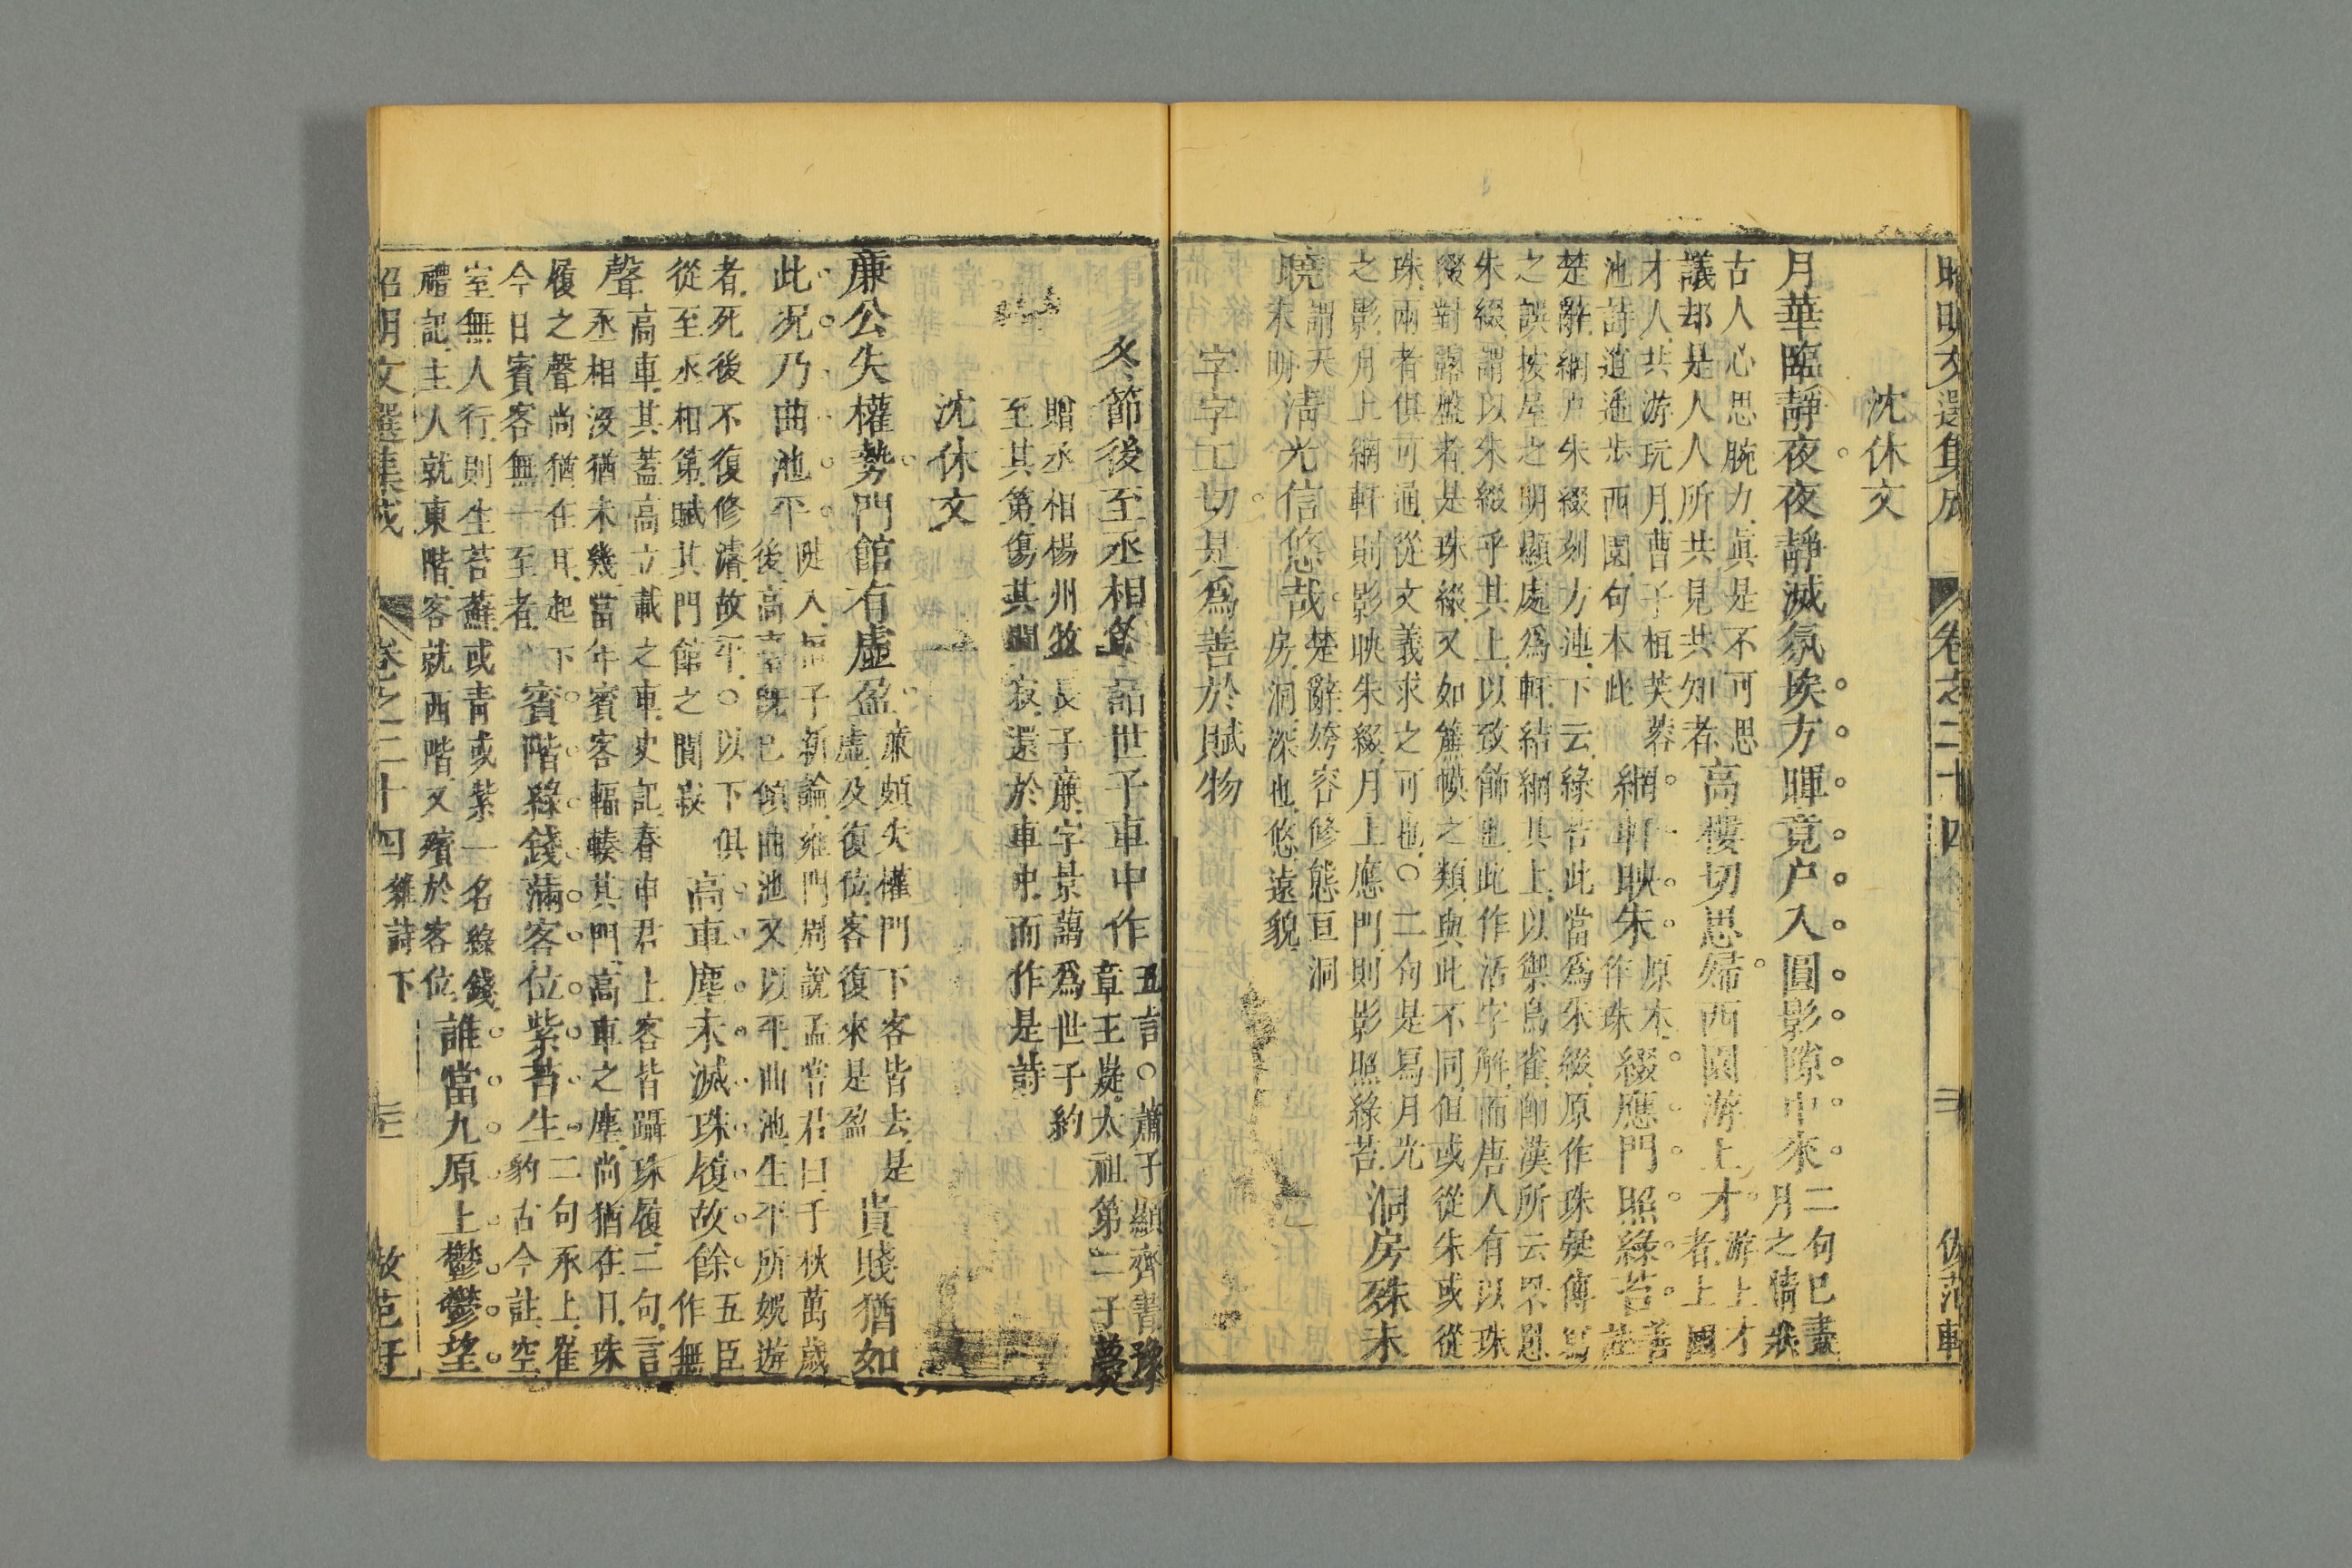 昭明文選集成 卷之二十四
沈休文
月華臨靜夜夜靜滅氛埃方暉竟户入圓影隙中來二句已畫月之情狀
古人心思腕力眞是不可思議却是人人所共見共知者高樓切思婦西園游上才游上才者上國
才人共游玩月曹子桓芙蓉池詩逍遙步西園句本此網軒映朱原本作珠綴應門照綠苔善註
楚辭網户朱綴刻方連下云綠苔此當爲朱綴原作珠疑傳寫之誤按屋之明顯處爲軒結網其上以禦鳥雀卽漢所云罘罳
朱綴謂以朱綴乎其上以致飾也此作活字解而唐人有以珠綴對露盤者是珠綴又如簾幙之類與此不同但或從朱或從
珠兩者俱可通從文義求之可也○二句是寫月光之影月上網軒則影映朱綴月上應門則影照綠苔洞房殊未
曉謂天未明清光信悠哉楚辭姱容修態亘洞房洞深也悠遠貌
字字工切是爲善於賦物
冬節後至丞相第詣世子車中作五言○蕭子顯齊書豫章王嶷太祖第二子薨
贈丞相楊州牧長子廉字景藹爲世子約至其第傷其閴寂還於車中而作是詩
沈休文
廉公失權勢門館有虛盈廉頗失權門下客皆去是虛及復位客復來是盈貴賤猶如
此况乃曲池平陡入桓子新論雍門周說孟嘗君曰千秋萬歲後高臺旣已傾曲池又以平曲池生平所娛遊
者死後不復修濬故平○以下俱從至丞相第賦其門館之閴寂高車塵未滅珠履故餘五臣作無
聲高車其蓋高立載之車史記春申君上客皆躡珠履二句言丞相沒猶未幾當年賓客輻輳其門高車之塵尚猶在日珠
履之聲尚猶在耳起下今日賓客無一至者賓階綠錢滿客位紫苔生二句承上崔豹古今註空
室無人行則生苔蘚或青或紫一名綠錢禮記主人就東階客就西階又殯於客位誰當九原上鬱鬱望
昭明文選集成 卷之二十四 雜詩下